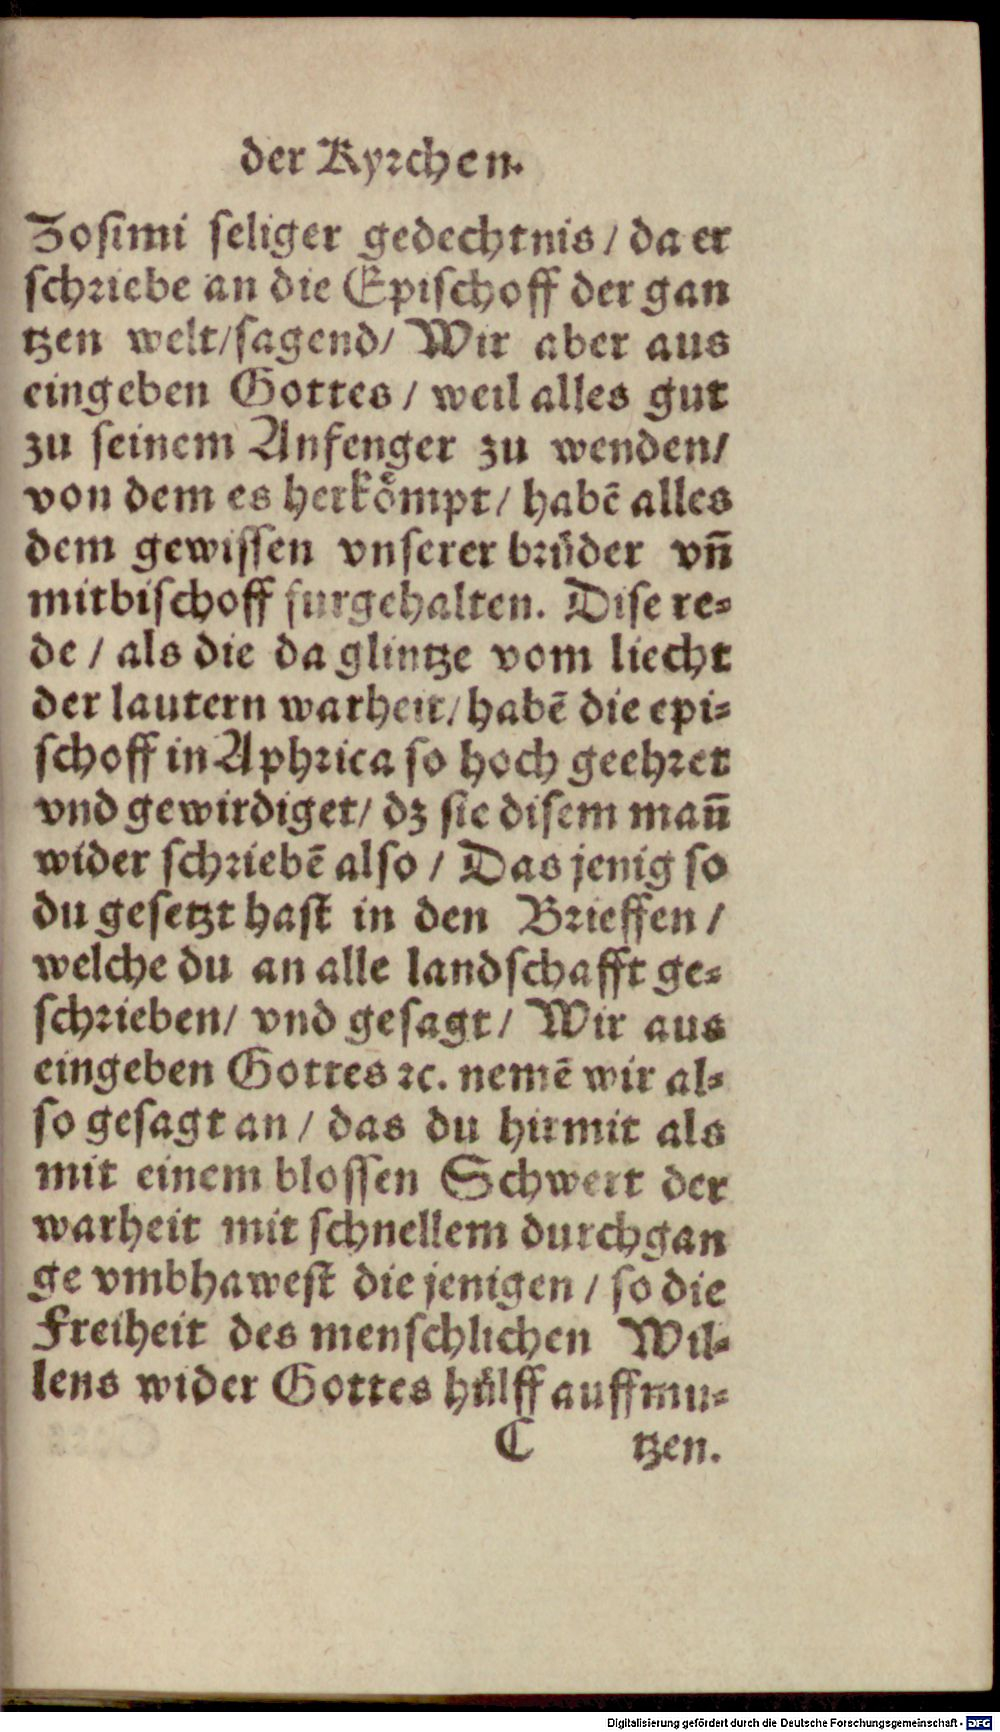 der Kyrchen.
Zosimi seliger gedechtnis / da er
schriebe an die Epischoff der gan
tzen welt/sagend/ Wir aber aus
eingeben Gottes / weil alles gut
zu seinem Anfenger zu wenden/
von dem es herkoͤmpt / habē alles
dem gewissen vnserer bruͤder vn̄
mitbischoff furgehalten. Dise re⸗
de / als die da glintze vom liecht
der lautern warheit/habē die epi⸗
schoff in Aphrica so hoch geehret
vnd gewirdiget/ dz sie disem man̄
wider schriebē also / Das jenig so
du gesetzt hast in den Brieffen /
welche du an alle landschafft ge⸗
schrieben/ vnd gesagt/ Wir aus
eingeben Gottes ꝛc. nemē wir al⸗
so gesagt an / das du hirmit als
mit einem blossen Schwert der
warheit mit schnellem durchgan
ge vmbhawest die jenigen / so die
Freiheit des menschlichen Wil⸗
lens wider Gottes huͤlff auffmu⸗
C tzen.
Digitalisierung gefördert durch die Deutsche Forschungsgemeinschaft - DFG